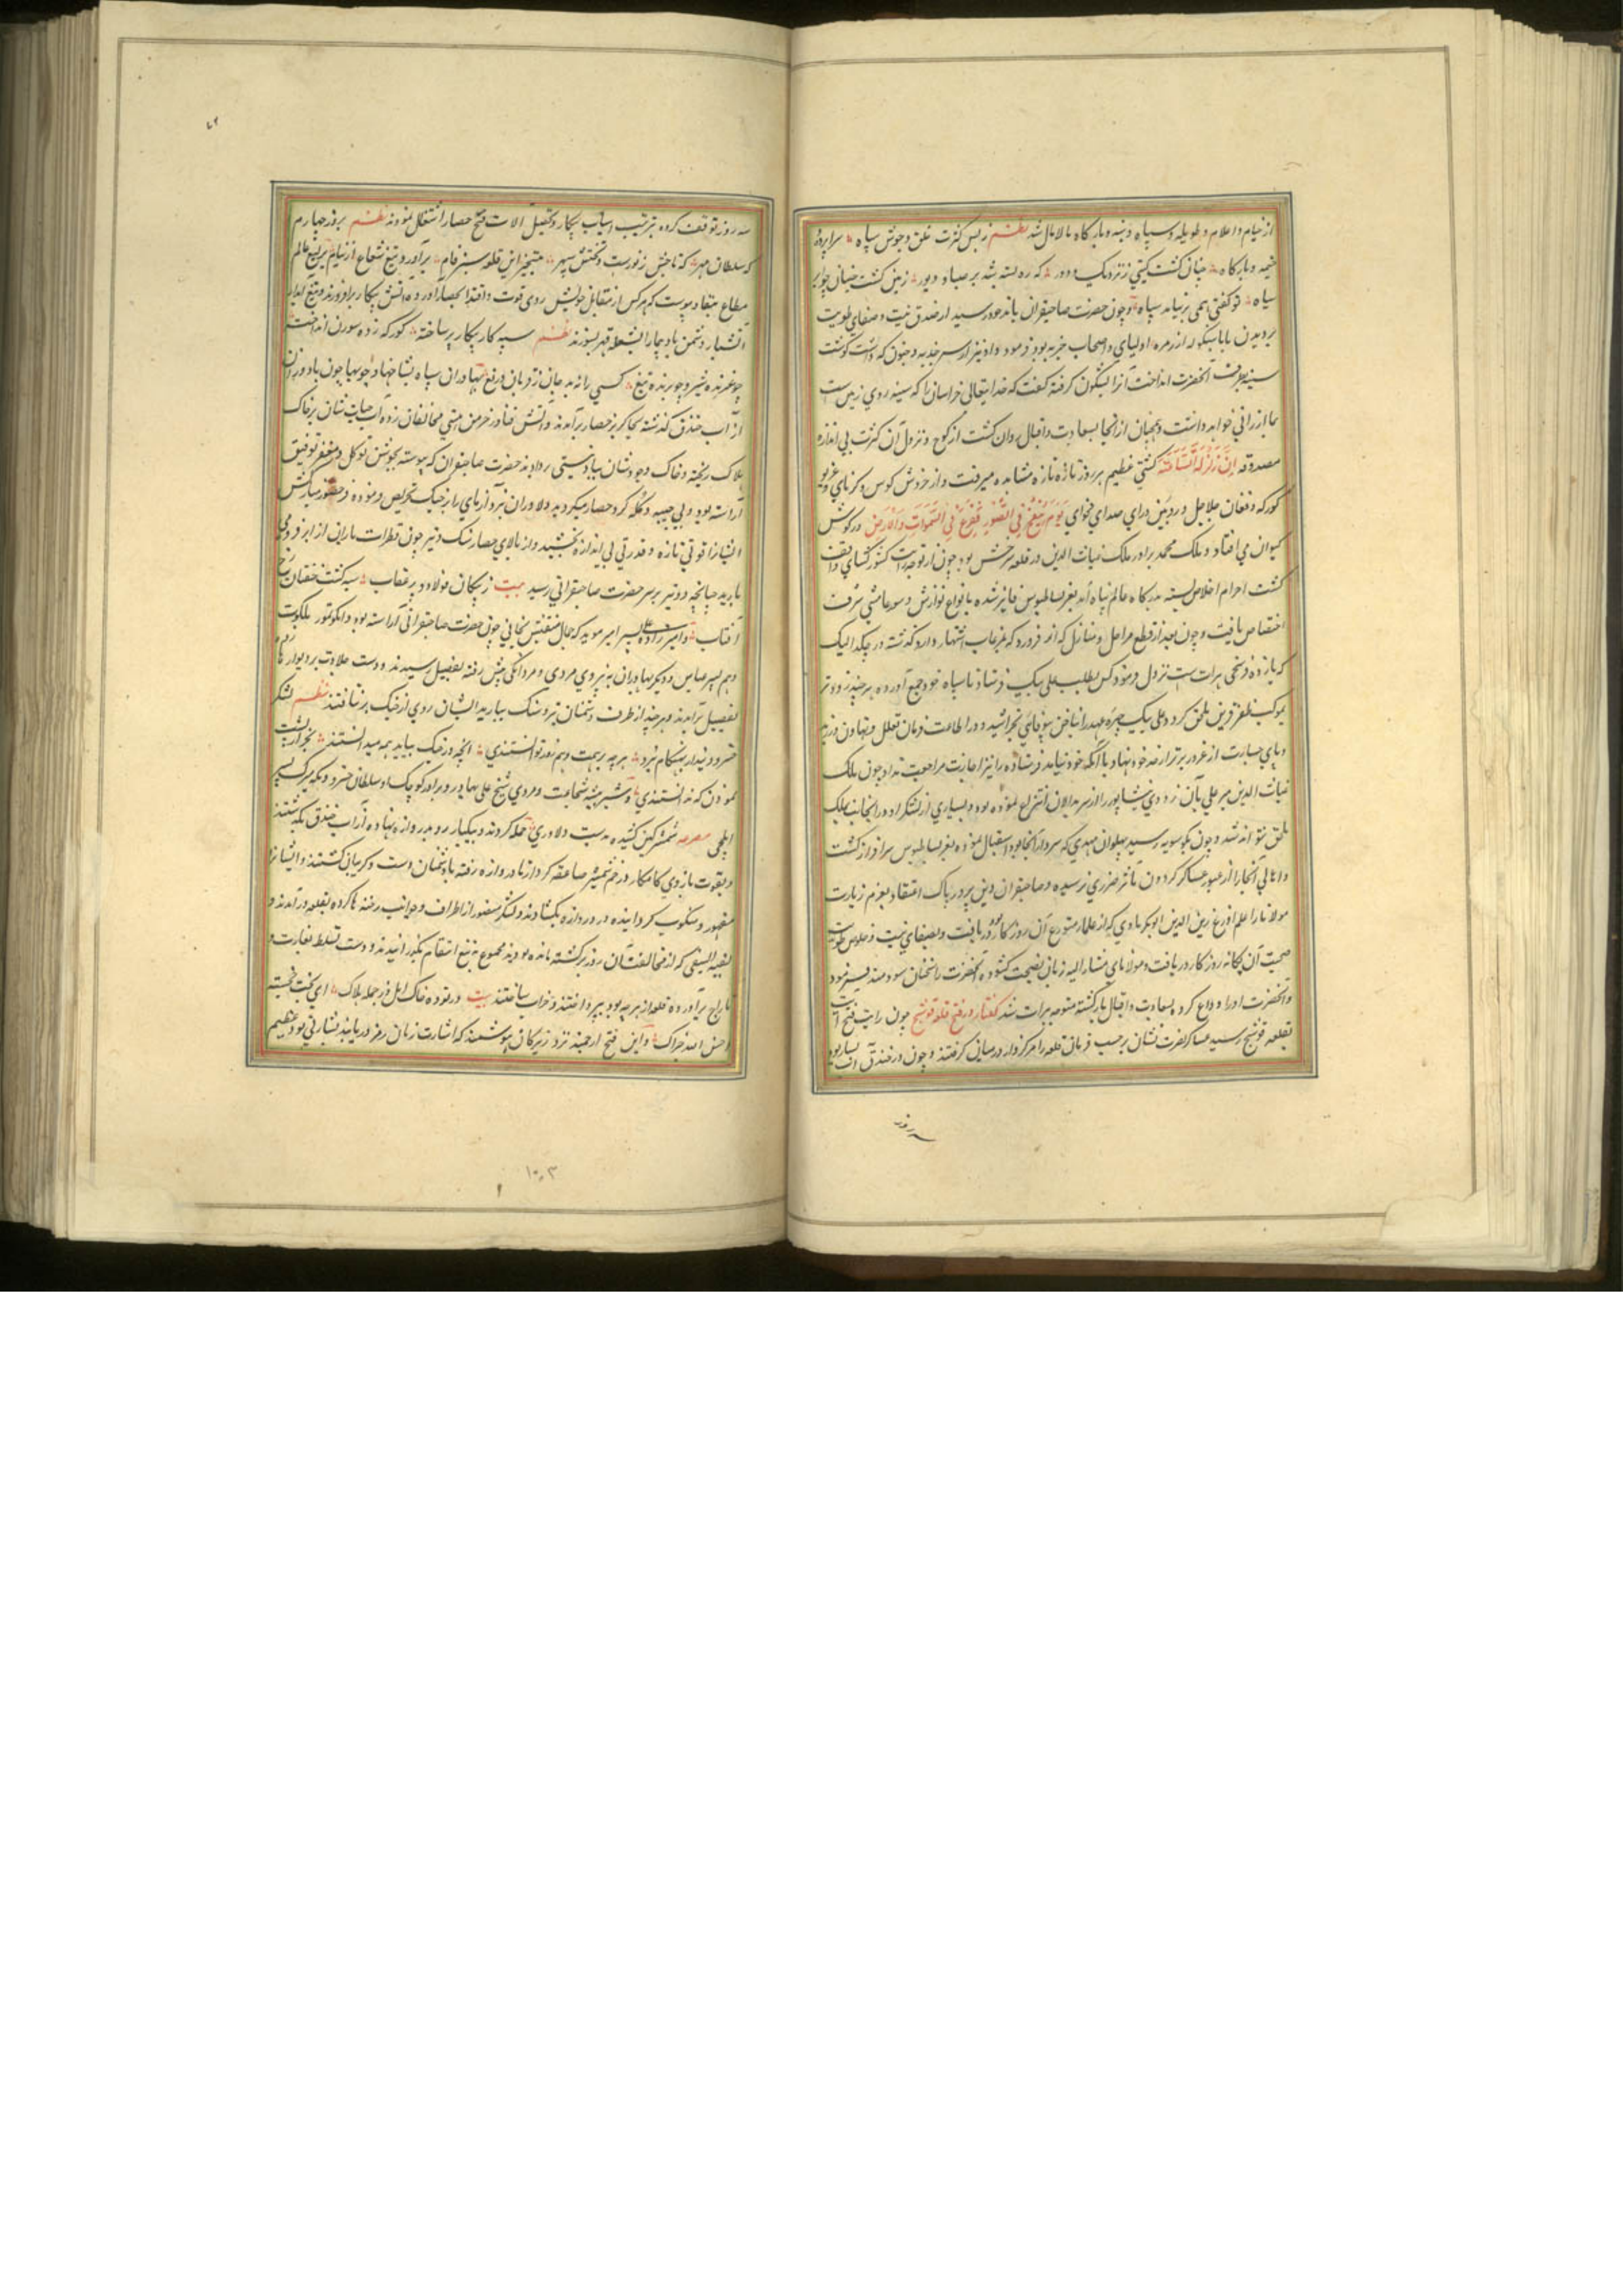 از خیام و اعلام و طویله و سپاه و بنه و بارگاه مالامال شد نظم ز بس کثرت خلق و جوش سپاه سراپرده
خیمه و بارگاه چنان گشت گیتی ز نزدیک و دور که ره بسته شد بر صبا و دبور زمین گشت جنبان چو ابر
سیاه تو گفتی همی بر نیاید سپاه و چون حضرت صاحبقران باندخود رسید از صدق نیت و صفای طویت
بدیدن بابا سنکو که از زمره اولیای و اصحاب جذبه بود فرمود و او نیز از سر جذبه و جنون که داشت گوشت
سینه بطرف آنحضرت انداخت آنرا شگون گرفته گفت که خدایتعالی خراسان را که سینه روی زمین است
بما ارزانی خواهد داشت و همچنان از آنجا بسعادت و اقبال روان گشت از کوچ و نزول آن کثرت بی اندازه
مصدوقه اِنَّ زَلْزَلَةَ السَّاعَةِ گشتی عظیم هر روز تازه تازه مشاهده میرفت و از خروش کوس و کرنای و غریو
کورکه و فغان جلاجل و رویین درای صدای فحوای یَوْمَ یُنْفَخُ فِی الصُّورِ فَفَزِعَ فِی السَّمٰوَاتِ وَالْاَرْضِ در گوش
کیوان می افتاد و ملک محمد برادر ملک غیاث الدین در قلعه سرخس بود چون از توجه رایت کشورگشای واقف
گشت احرام اخلاص بسته بدرگاه عالم پناه آمد بعز بساط بوس فایز شده بانواع نوازش و سیورغامشی شرف
اختصاص یافت و چون بعد از قطع مراحل و منازل که از فرود که بمرغاب اشتهار دارد گذشته در چکدالیک
که یازده فرسخی هرات است نزول فرمود کس بطلب علی بیک فرستاد تا سپاه خود جمع آورده هر چند زودتر
بموکب ظفر قرین ملحق گردد و علی بیک چهره عهد را بناخن بیوفایی بخراشید و در اطاعت فرمان تعلل و تهاون ورزید
و پای جسارت از غرور برتر از حد خود نهاد با آنکه خود نیامد فرستاده را نیز اجازت مراجعت نداد و چون ملک
غیاث الدین پیر علی بآن زودی نیشاپور را از سربدالان انتزاع نموده بود و بسیاری از لشکر او در آنجا بملک
ملحق نتوانند شد و چون بکوسویه رسید پهلوان مهدی که سردار آنجا بود استقبال نموده بعز بساط بوس سرافراز گشت
و اهالی آنجا را از عبور عساکر گردون مآثر ضرری نرسیده و صاحبقران دین پرور پاک اعتقاد بعزم زیارت
مولانا اعلم اورع زین الدین ابوبکر تایبادی که از علمای متورع آن روزگار بود دریافت و بصفای نیت و خلوص طویت
صحبت آن یگانه روزگار دریافت و مولانای مشارالیه زبان نصیحت گشوده آنحضرت را سخنان سودمند فرمود
و آنحضرت او را وداع کرده بسعادت و اقبال بازگشته متوجه هرات شد گفتار در فتح قلعه فوشنج چون رایت فتح آیت
بقلعه فوشنج رسید عساکر نصرت نشان بر حسب فرمان قلعه را مرکزوار در میان گرفتند و چون در خندق آب بسیار بود
سه روز
سه روز توقف کرده بترتیب اسباب پیکار و تحصیل آلات فتح حصار اشتغال نمودند نظم بروز چهارم
که سلطان مهر که تاجش ز نورست و تختش سپهر بتسخیر این قلعه سبز فام برآورد تیغ شعاع از نیام یرلیغ عالم
مطاع بنفاد پیوست که هر کس از مقابل خویش روی قوت و اقتدار بحصار آورده آتش پیکار برافروزند و تیغ آبدار
آتشبار دشمن بادپیما را بشعله قهر بسوزند نظم سپه کار پیکار بر ساخته کورکه زده سورن انداخته
چو غرنده شیر و چو برنده تیغ کسی را نه بد جان ز فرمان دریغ بهادران سپاه بشاخها و چوبها چون باد وزان
از آب خندق گذشته بخاکریز حصار برآمدند و آتش فنا در خرمن هستی مخالفان زده آب حیات شان بر خاک
هلاک ریخته و خاک وجودشان بباد نیستی دادند حضرت صاحبقران که پیوسته بجوشن توکل و مغفر توفیق
آراسته بود و بی جیبه و دبلگه گرد حصار میگردید و دلاوران نبرد آزمای را بر جنگ تحریص فرموده و حضور مبارکش
ایشانرا قوتی تازه و قدرتی بی اندازه بخشید و از بالای حصار سنگ و تیر چون قطرات باران از ابر فرو می
بارید چنانچه دو تیر بر سر حضرت صاحبقرانی رسید بیت ز پیکان فولاد و پر عقاب سیه گشت خفتان رخ
آفتاب و امیرزاده علی پسر امیر موید که جمال منقبتش بخالی چون حضرت صاحبقرانی آراسته بود و ایکو تیمور بلکوت
و هم پسر عباس و دیگر بهادران به نیروی مردی و مردانگی پیش رفته بفصیل رسیدند و دست جلادت بر دیوار
بفصیل برآمدند و هر چند از طرف دشمنان تیر و سنگ بارید ایشان روی از جنگ برنتافتند نظم لشکر
خسرو دیندار بهنگام نبرد هر چه بر همت و هم زور توانستندی آنچه در جنگ بیاید همه میدانستند بجز از پشت
نمودن که ندانستندی و شیر بیشه شجاعت و مردی شیخ علی بهادر و برادر کوچک او سلطان خسرو و پسر
ایلچی مصرعه شمشیر کین کشیده بدست دلاوری حمله کردند و بیکبار رو بدروازه نهاده از آب خندق بگذشتند
و بقوت بازوی کامکار و زخم شمشیر صاعقه کردار تا در دروازه رفته با دشمنان دست و گریبان گشتند و ایشانرا
مقهور و منکوب گردانیده در دروازه بگشادند و لشکر منصور از اطراف و جوانب رخنه ها کرده بقلعه درآمدند و
بقیه السیفی که از مخالفت آن روز برگشته مانده بودند مجموع به تیغ انتقام بگذرانیدند و دست تسلط بغارت و
تاراج برآورده قلعه از هر چه بود بپرداختند و خراب ساختند بیت در توده خاک اهل او جمله هلاک ای بخت خجسته
احسن الله جزاک و این فتح ارجمند نزد زیرکان هوشمند که اشارت زبان رمز دریابند بشارتی بود عظیم
۱۰۰۳